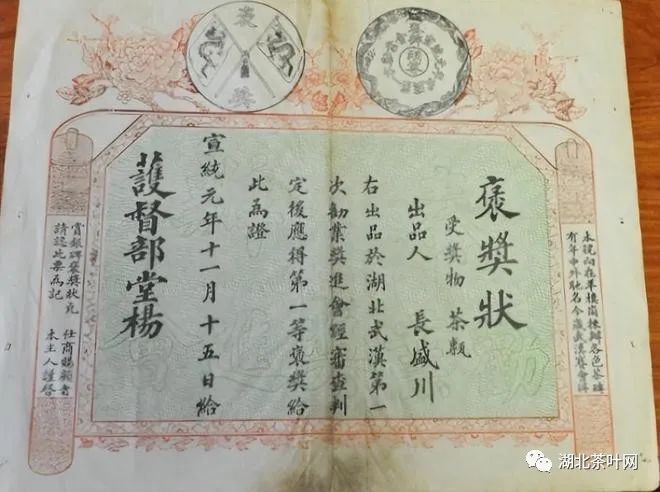 褒
獎
本號向在羊樓崗揀辦各色茶磚
有年中外馳名今蒙武漢賽會得
褒獎狀
受獎物 茶甎
出品人 長盛川
右出品於湖北武漢第一
次勸業獎進會經審查判
定後應得第一等褒獎給
此為證
宣統元年十一月十五日給
護督部堂楊
賞銀牌褒獎狀 仕商賜顧者
請認此票為記 本主人謹啓
湖北茶叶网